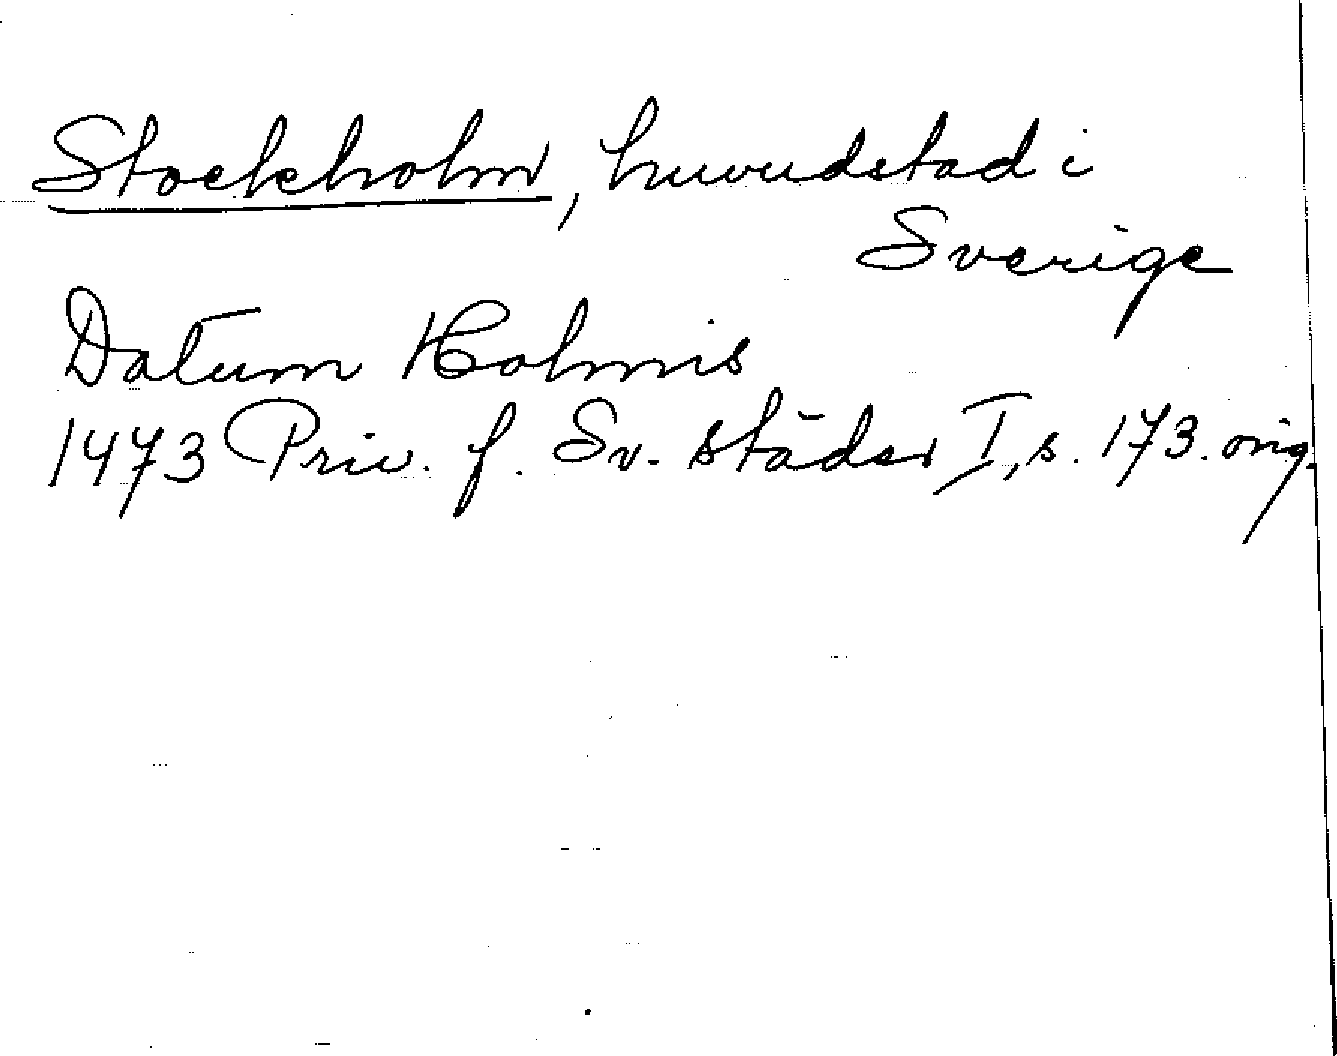 Stockholm, huvudstad i
Sverige
Datum Holmis
1473 Priv. f. Sv. städer I, s. 173. orig.